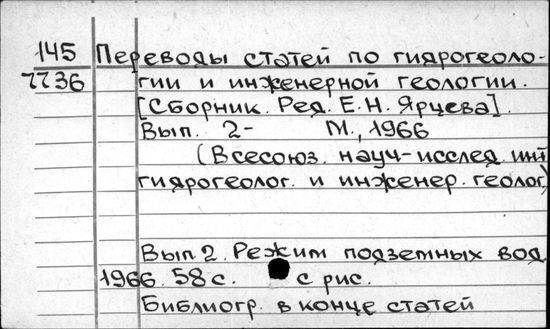 145 Переводы статей по гидрогеоло-
7736 гии и инженерной геологии.
[Сборник. Ред. Е.Н. Ярцева].
Вып. 2- М., 1966
(Всесоюз. науч-исслед. инт
гидрогеолог. и инженер. геолог)
Вып 2. Режим подземных вод
1966. 58 с. с рис.
Библиогр. в конце статей